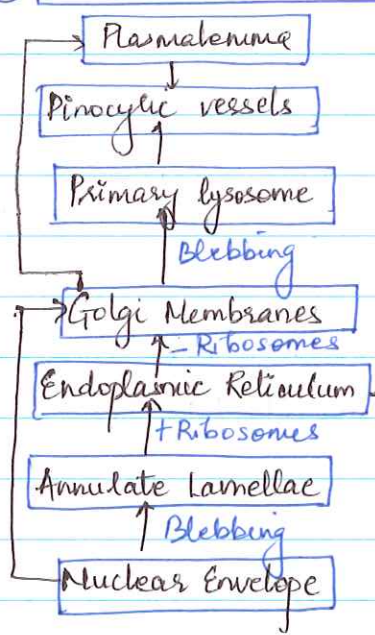 Plasmalemma
Pinocytic vessels
Primary lysosome
Blebbing
Golgi Membranes
- Ribosomes
Endoplasmic Reticulum
+ Ribosomes
Annulate Lamellae
Blebbing
Nuclear Envelope